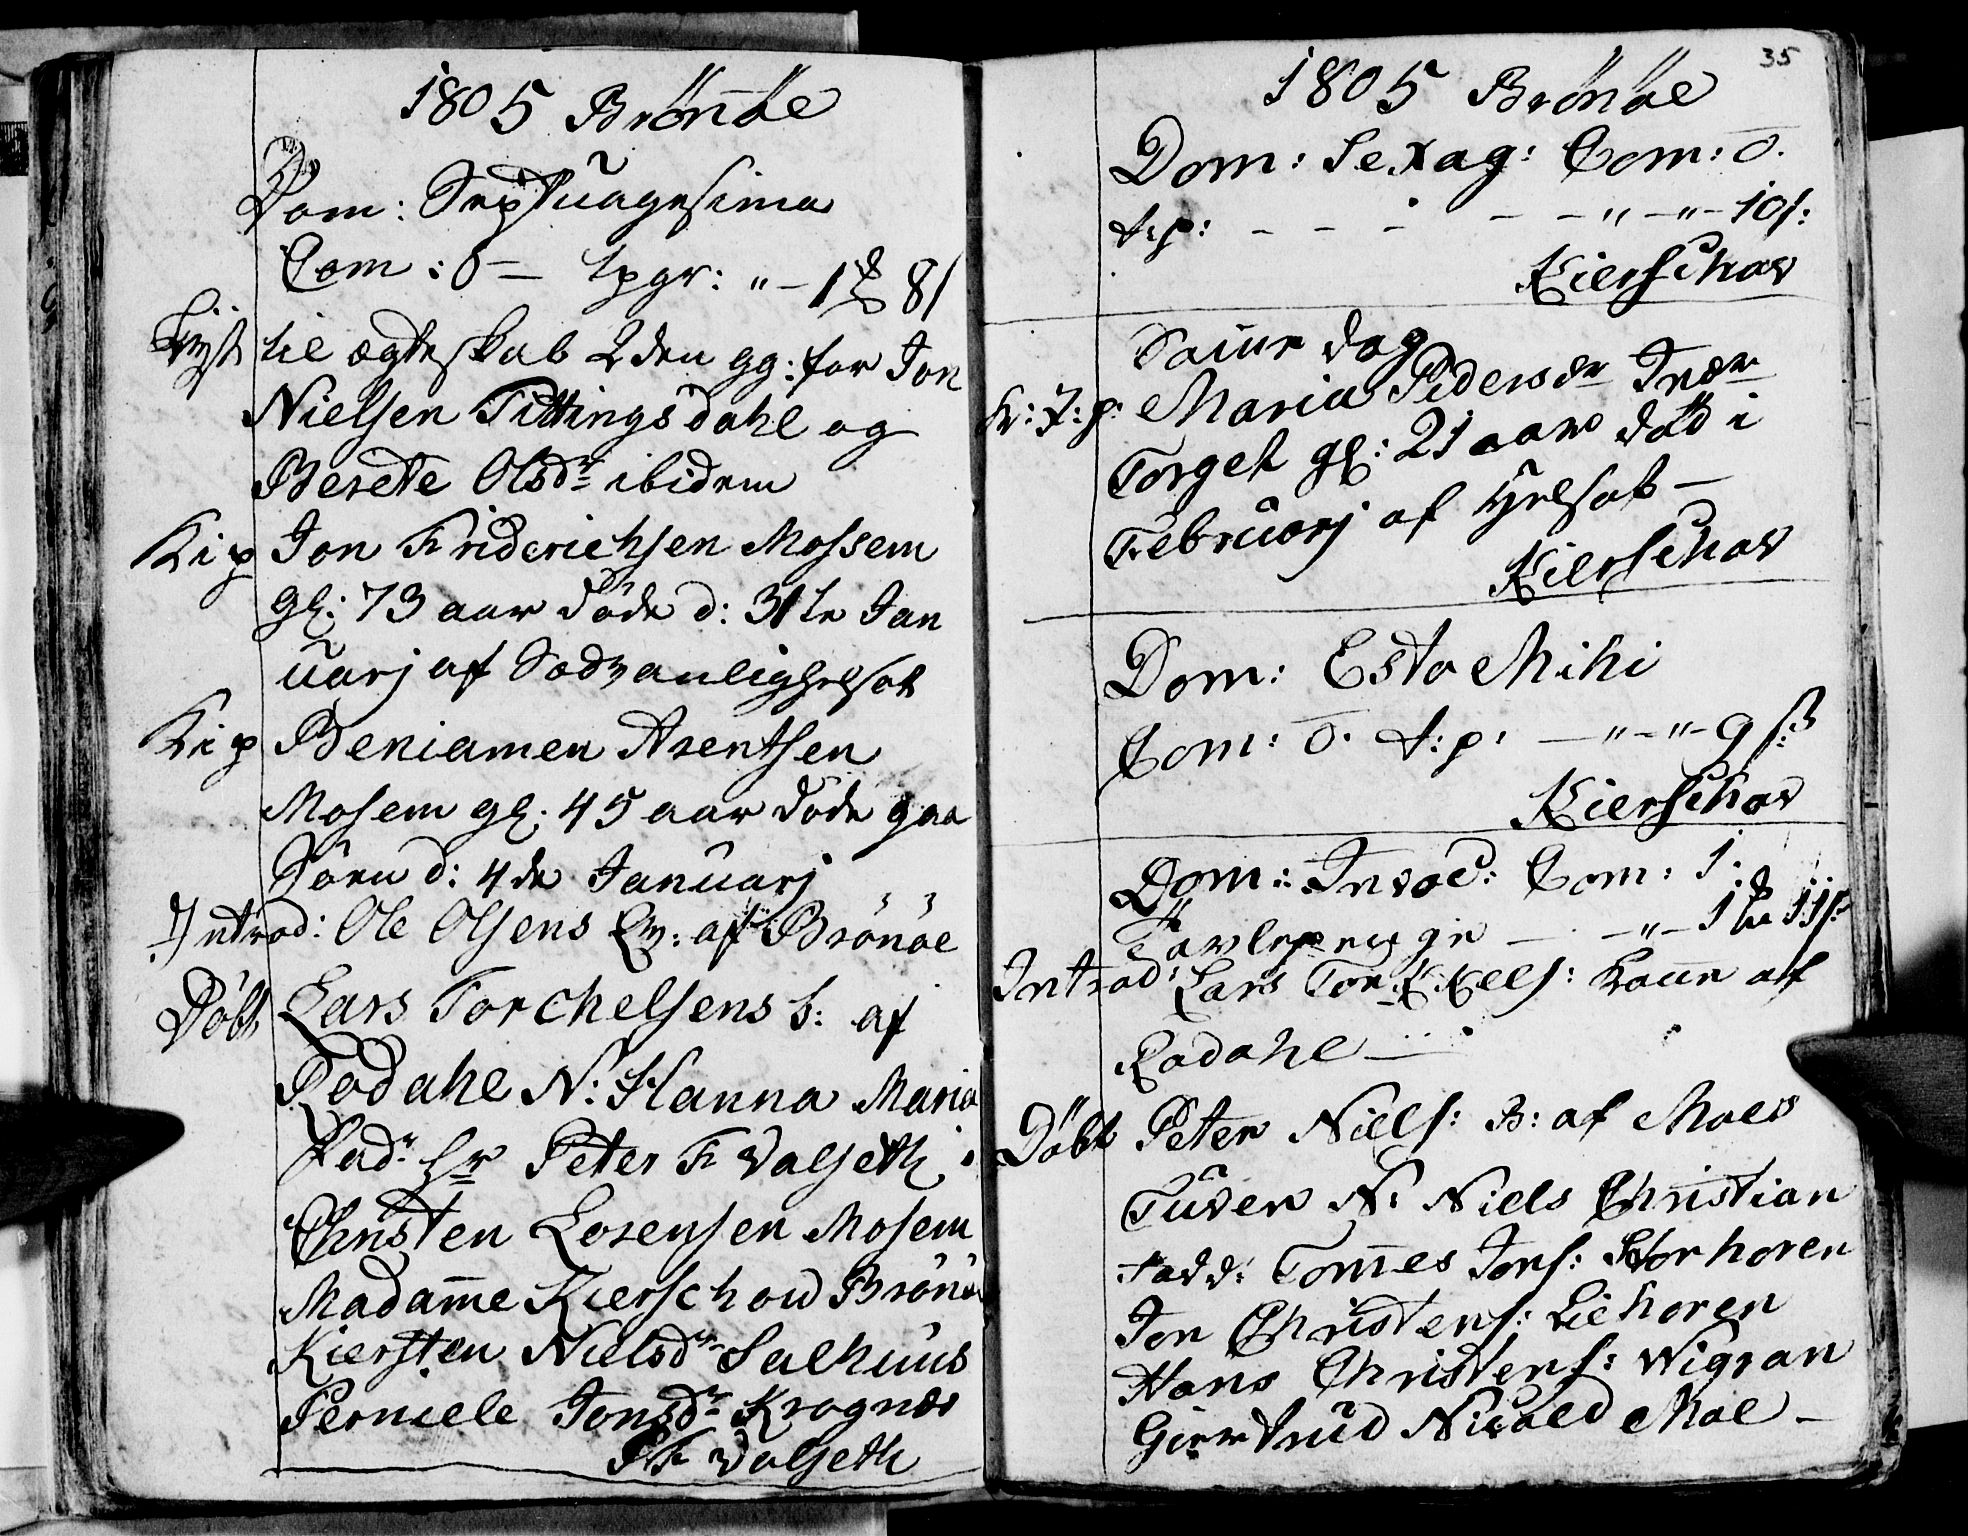 1805 Brönöe
Dom: Septuagesima
Com: 0 — tpgr: „ — 1 8
Lyst til ægteskab 2den gg: for Jon
Nielsen Tittingsdahl og
Berete Olsdr ibidem
K i p Jon Friderichsen Mossem
gl: 73 aar döde d: 31te Jan
uarj af
K i p Beniamen Arentsen
Mosem gl: 45 aar döde paa
Söen d: 4de Januarj
Introd: Ole Olsens Qv: af Brönöe
Döbt Lars Torchelsens b: af
N: Hanna Maria
Fad: Hr Peter F Valseth
Christen Lorensen Mosem
Madame Kierschow Brönö
Kiersten Nielsdr Salhuus
Perniele Jonsdr Kragnæs
P F Valseth
35
1805 Brönöe
Dom: Sexag: Com: 0.
t:p: — — — — — „ — „ — 10 s:
Kierschow
Samme dag
K: J: p: Maria Pedersdr
Torget gl: 21 aar död i
Februarj af
Kierschow
Dom: Esto Mihi
Com: 0. t:p: — „ — „ — 9 s:
Kierschow
Dom: Invoc: Com: 1.
Tavlepenge — — „ — 1 11 s:
Introd: Lars Torkkels: Kone af
Döbt Peter Niels: B: af Moe
N: Niels Christian
Fadd: Tommes Jons: Storhoren
Jon Christens: Liehoren
Hans Christens: Wigran
Giertrud Moe —